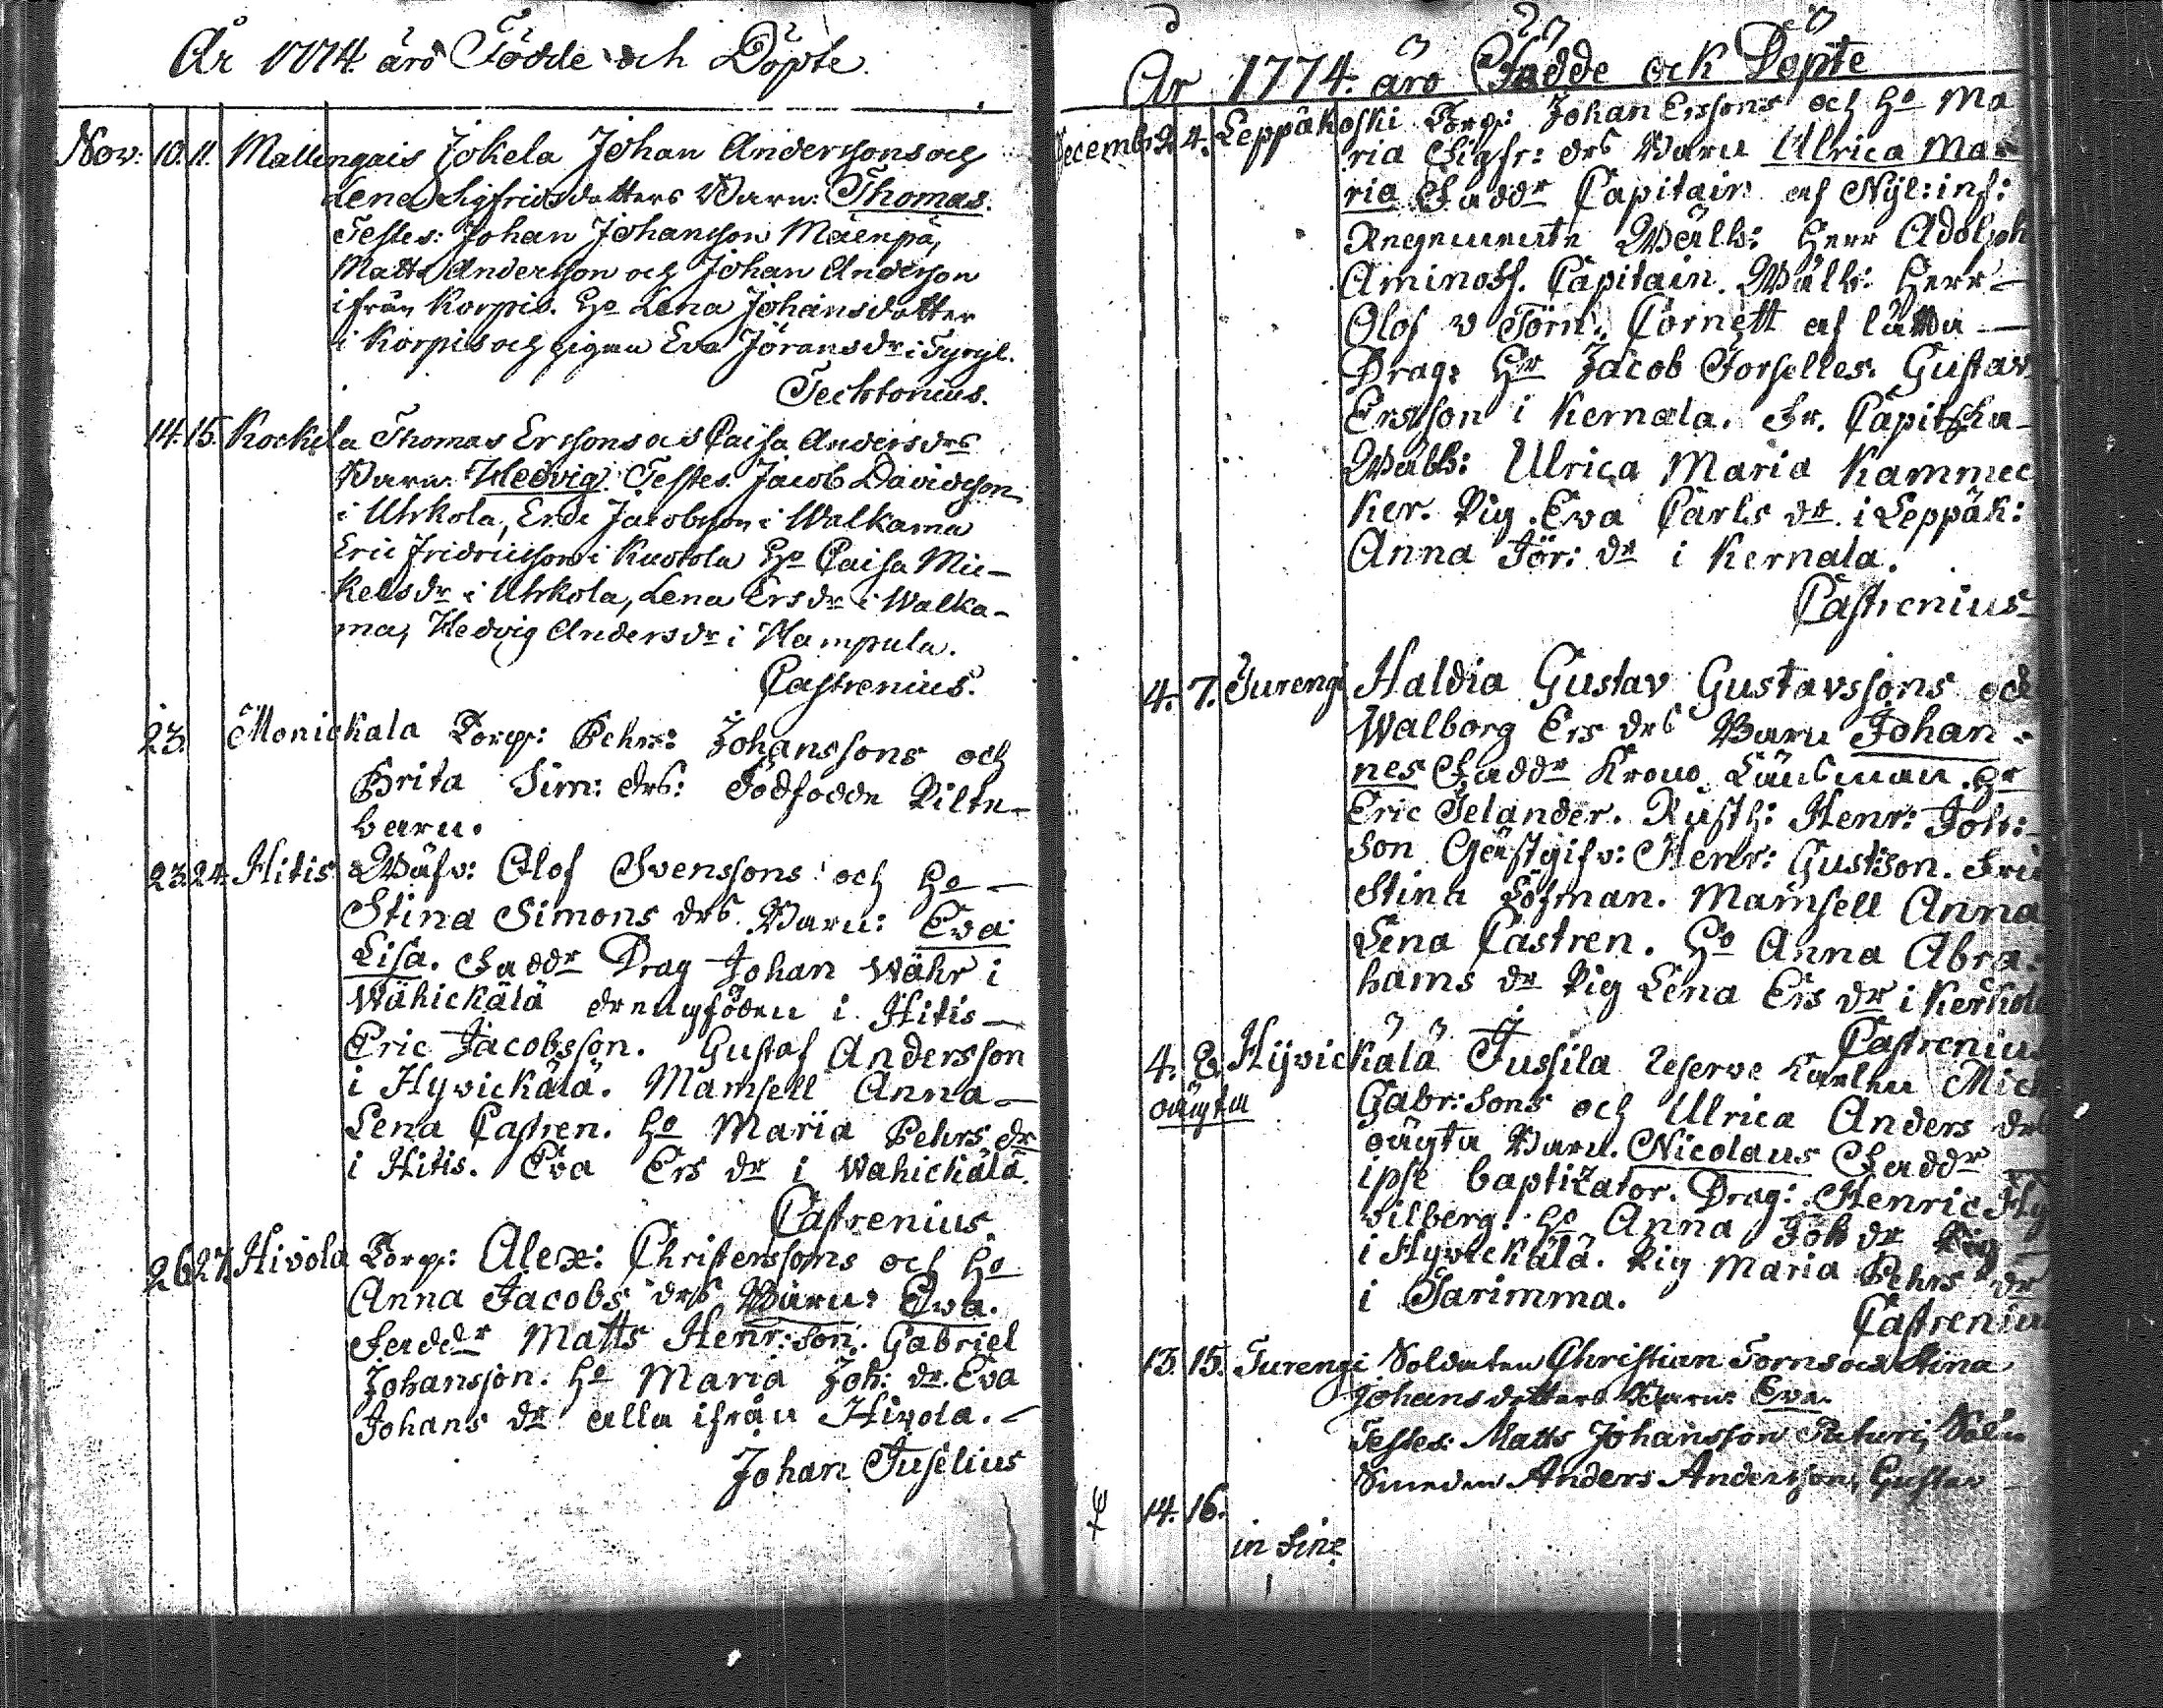 År 1774. äro Födde och Döpte.
Nov: 10. 11. Mallingais Jokela Johan Anderssons och
Lena Sigfridsdotters Barn: Thomas.
Testes: Johan Johansson Mäenpä,
Matts Andersson och Johan Andersson
ifrån Korpis. Ho Lena Johansdotter
i Korpis och pigan Eva Jöransdr i
Techtonius.
14. 15. Kockila Thomas Erssons och Caisa Anders drs
Barn: Hedvig. Testes. Jacob Davidsson
i Uhkola, Eric Jacobsson i Walkama
Eric Fridricsson i Ho Caisa Mic-
kelsdr i Uhkola, Lena Ersdr i Walka-
ma, Hedvig Andersdr i Hampula.
Castrenius.
23. Monickala Torp: Pehr: Johanssons och
Brita Sim: drs: dödfödde Pilte-
barn.
23. 24. Hitis Wäfv: Olof Svenssons och Ho
Stina Simons drs Barn: Eva
Lisa. Faddr Drag Johan Währ i
Wähickälä drengjöden i Hitis
Eric Jacobsson. Gustaf Andersson
i Hyvickälä. Mamsell Anna
Lena Castren. Ho Maria Pehrs dr
i Hitis. Eva Ers dr i Wahickälä.
Castrenius
26. 27. Hivola Torp: Alex: Christerssons och Ho
Anna Jacobs drs Barn: Eva.
Faddr Matts Henr: son. Gabriel
Johansson. Ho Maria Joh: dr. Eva
Johans dr alla ifrån Hivola.
Johan Tuselius
År 1774. äro Födde ock Döpte
Decemb: 2. 4. Leppäkoski Torp: Johan Erssons och Ho Ma
ria Sigfr: drs Barn Ulrica Ma-
ria Faddr Capitain af Nyl: inf:
Regemente Wälb: Herr Adolph
Aminoff. Capitain. Wälb: Herr
Olof v Törn. Cornett af lätta
Drag: Hr Jacob Forselles. Gustav
Ersson i Kernala. Fr. Capitska
Wälb: Ulrica Maria Kammec
ker. Pig. Eva Carls dr i Leppäk:
Anna Jör: dr i Kernala.
Castrenius
4. 7. Turengi Haldia Gustav Gustavssons ock
Walborg Ers drs Barn Johan-
nes Faddr Krono Länsman Hr
Eric Telander. Rusth: Henr: Joh:
son Gästgifv: Henr: Gustson. Fru
Stina Löfman. Mamsell Anna
Lena Castren. Ho Anna Abra-
hams dr Pig Lena Ers dr i
Castrenius
4. 8. Hyvickälä Jussila Reserve Karlen Mich
oägta Gabr: sons och Ulrica Anders drs
oägta Barn. Nicolaus Faddr
ipse baptizator. Drag: Henric
vilberg. Ho Anna Joh dr Pig
i Hyvickälä. Pig Maria Pehrs dr
i Sarimma.
Castrenius
13. 15. Turengi Soldaten Christian Torns och Stina
Johansdotters Barn: Eva.
Testes: Matts Johansson
Smeden Anders Andersson, Gustav
14. 16.
in fine